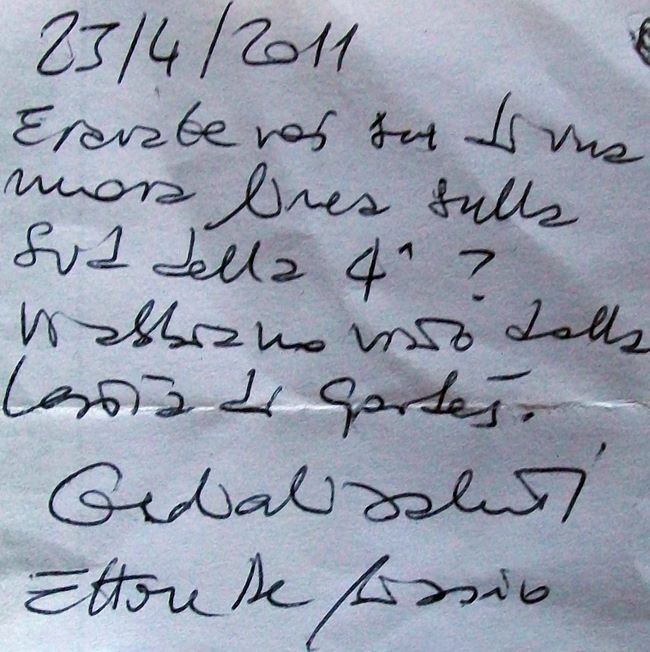 23/4/2011
Eravate voi su di una
nuova linea sulla
Sud della 4^ ?
Vi abbiamo visto dalla
di
Cordiali saluti
Ettore De